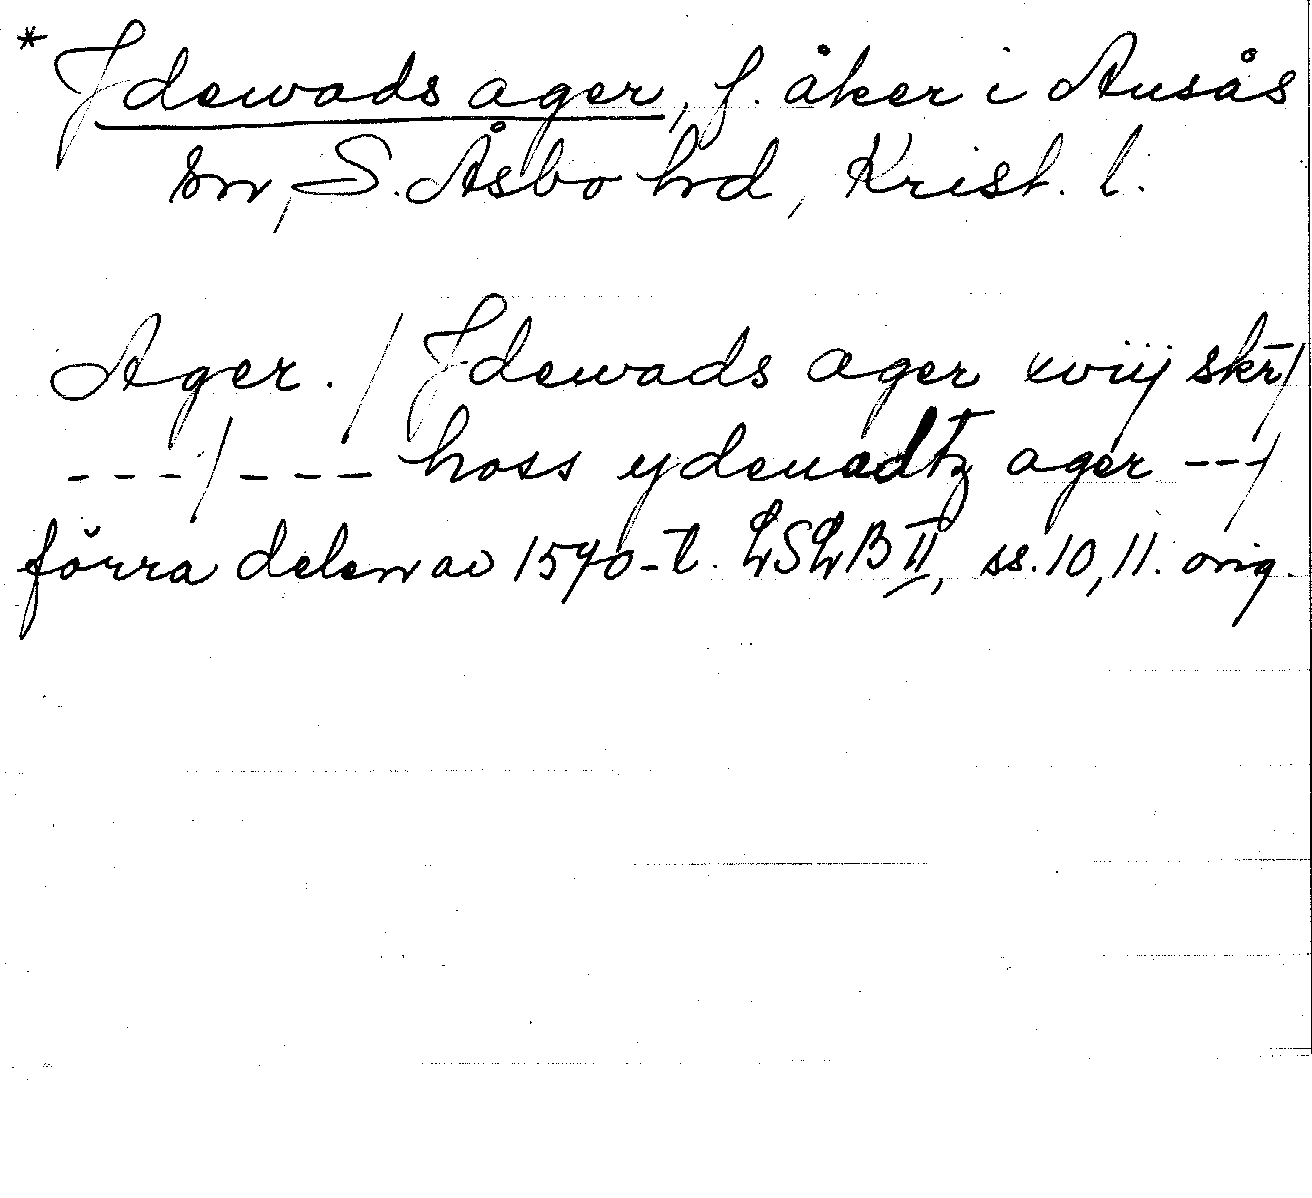 * Jdewads ager, f. åker i Ausås
sn, S. Åsbo hd, Krist. l.
Ager. / Jdewads ager xviij skr̄/
---/--- hoss ydeuadtz ager ---/
förra delen av 1570-t. LSLB II, ss. 10, 11. orig.